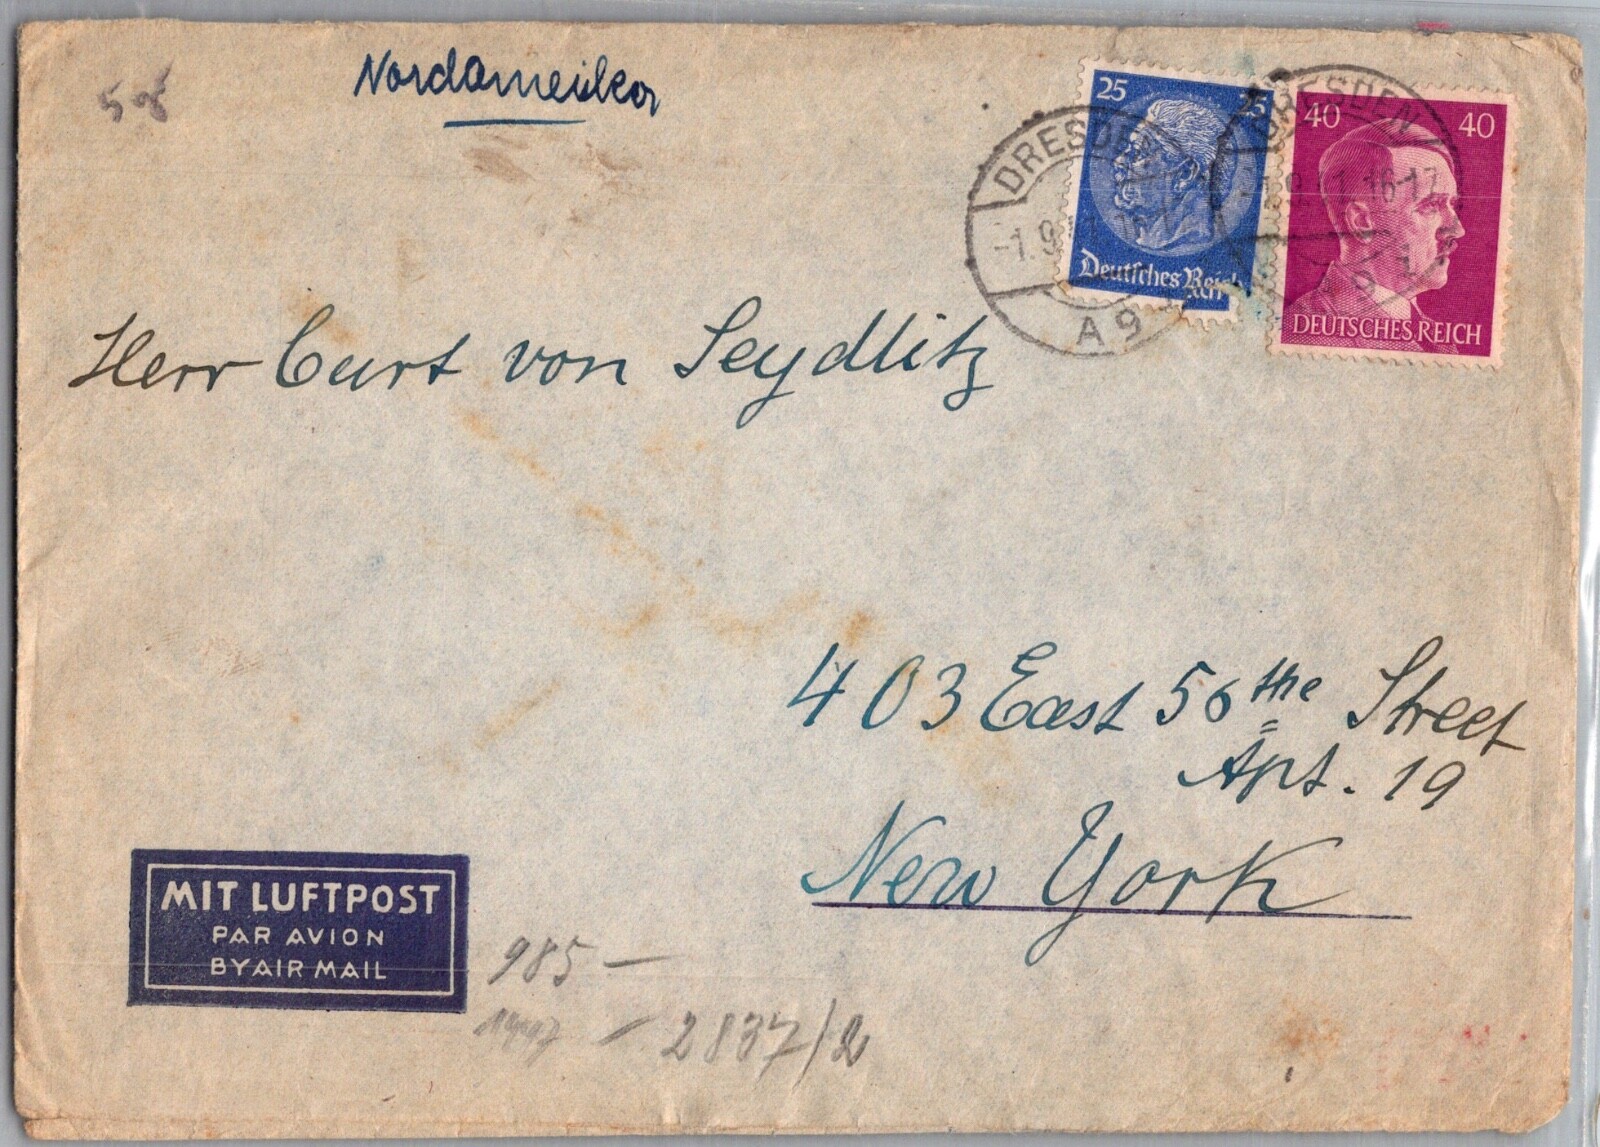 58
Nordamerika
25 25
Deutsches Reich
40 40
DEUTSCHES REICH
DRESDEN
-1.9
A 9
DRESDEN
16-17
9
Herr Curt von Seydlitz
403 East 56 the Street
Apt. 19
New York
MIT LUFTPOST
PAR AVION
BY AIR MAIL
985 –
– 2837/2